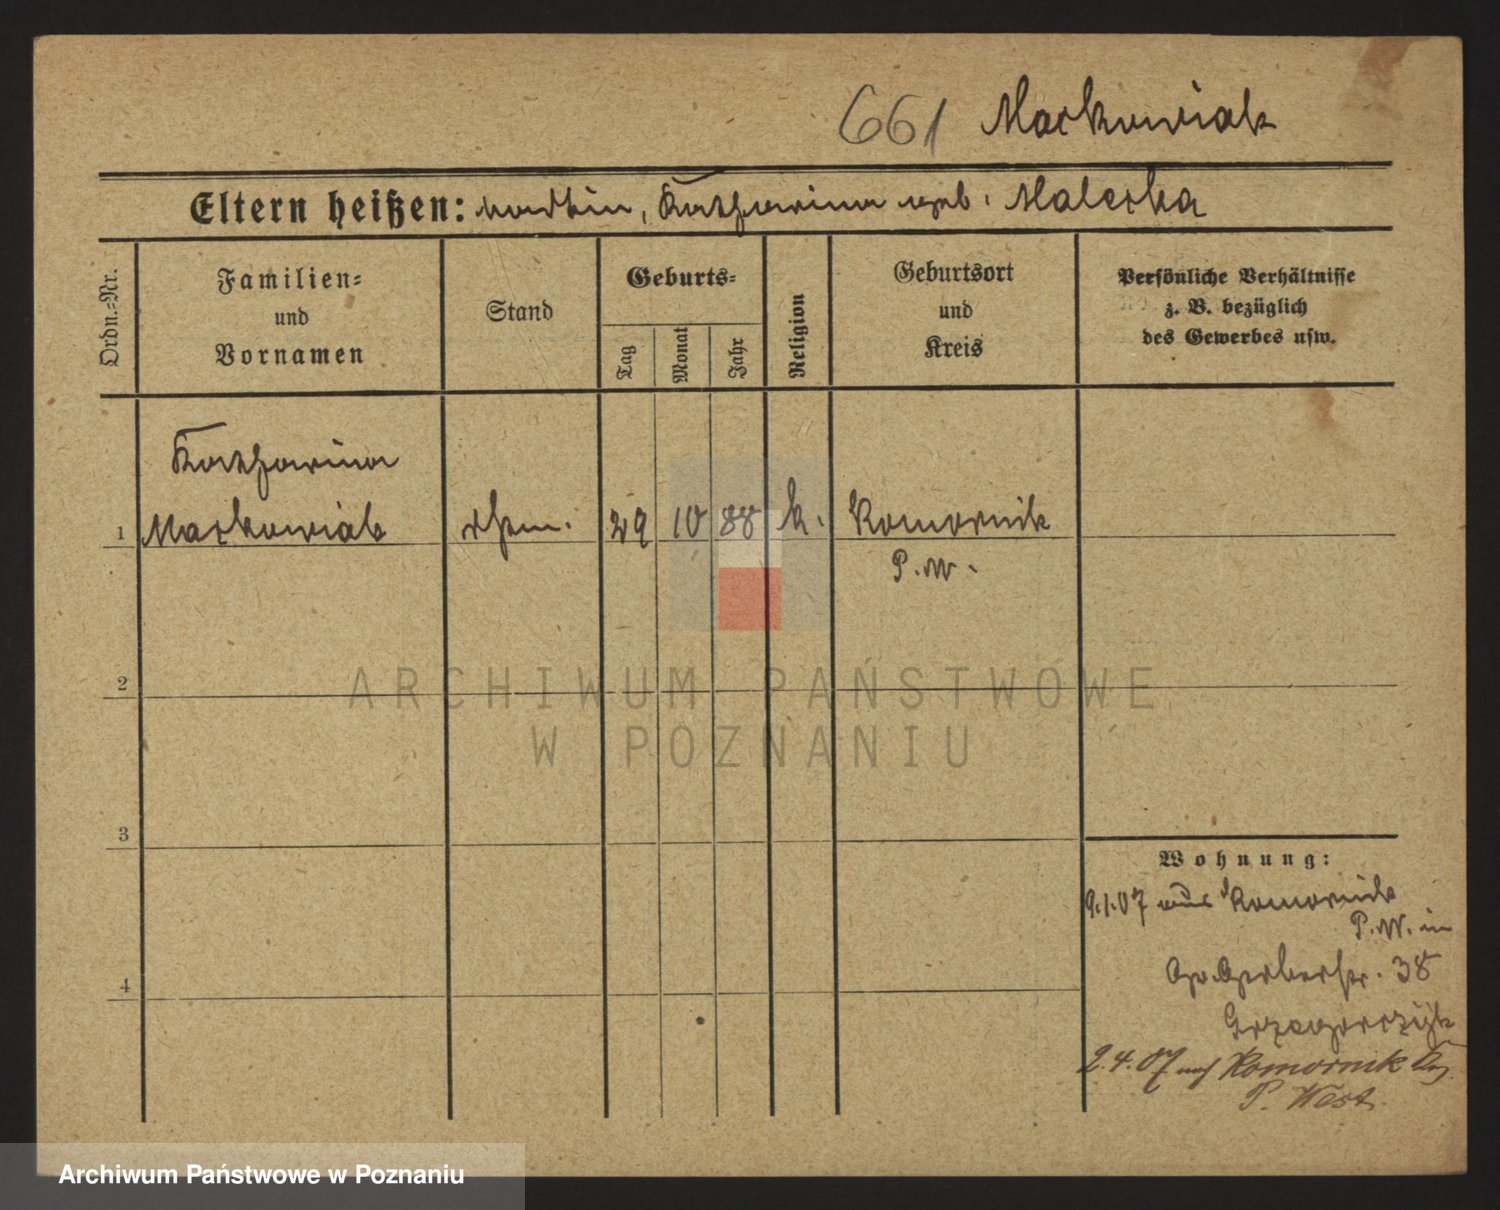 661 Maćkowiak
Eltern heißen: Martin, Katharina geb. Malecka
Ordn.-Nr.
Familien-
und
Vornamen
Stand
Geburts-
Tag
Monat
Jahr
Religion
Geburtsort
und
Kreis
Persönliche Verhältnisse
z. B. bezüglich
des Gewerbes usw.
Katharina
1 Maćkowiak 29 10 88 k. Komornik
P. W.
2
ARCHIWUM PAŃSTWOWE
W POZNANIU
3
Wohnung:
9.1.07 aus Komornik
P. W. in
Gr. Gerberstr. 38
4
2.4.07 nach Komornik
P. West.
Archiwum Państwowe w Poznaniu